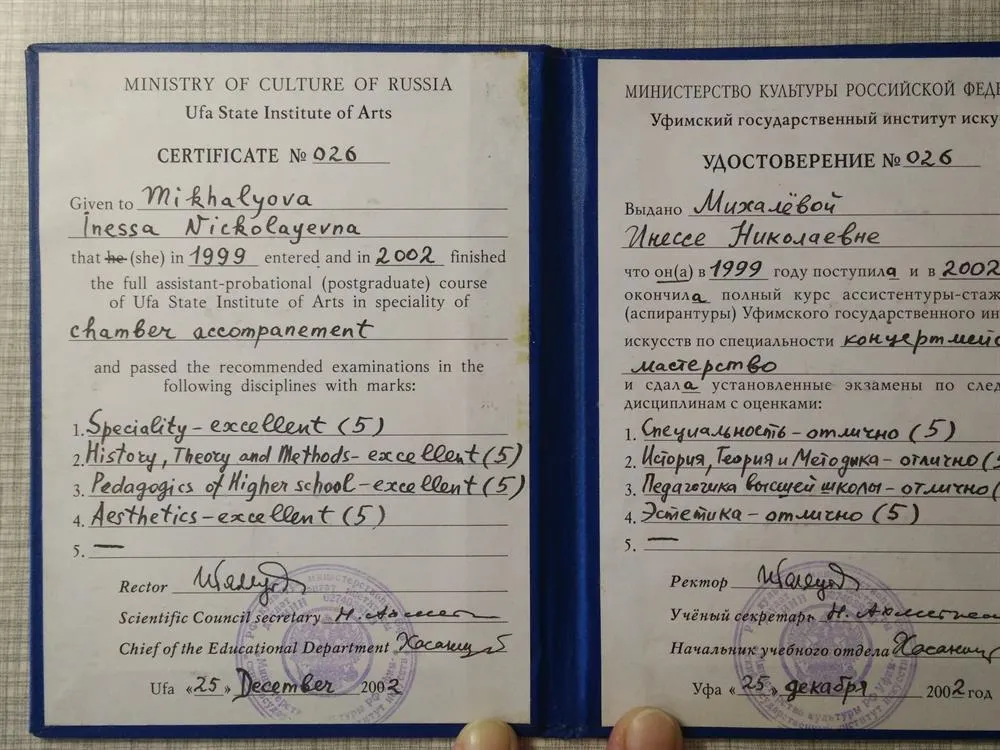 MINISTRY OF CULTURE OF RUSSIA
Ufa State Institute of Arts
CERTIFICATE № 026
Given to Mikhalyova
Inessa Nickolayevna
that he (she) in 1999 entered and in 2002 finished
the full assistant-probational (postgraduate) course
of Ufa State Institute of Arts in speciality of
chamber accompanement
and passed the recommended examinations in the
following disciplines with marks:
1. Speciality – excellent (5)
2. History, Theory and Methods – excellent (5)
3. Pedagogics of Higher school – excellent (5)
4. Aesthetics – excellent (5)
5. —
Rector
Scientific Council secretary
Chief of the Educational Department
Ufa «25» December 2002
МИНИСТЕРСТВО КУЛЬТУРЫ РОССИЙСКОЙ ФЕДЕ
Уфимский государственный институт иску
УДОСТОВЕРЕНИЕ № 026
Выдано Михалёвой
Инессе Николаевне
что он(а) в 1999 году поступила и в 2002
окончила полный курс ассистентуры-стаж
(аспирантуры) Уфимского государственного ин
искусств по специальности концертмейс
мастерство
и сдала установленные экзамены по след
дисциплинам с оценками:
1. Специальность – отлично (5)
2. История, Теория и Методика – отлично (5
3. Педагогика высшей школы – отлично (
4. Эстетика – отлично (5)
5. —
Ректор
Учёный секретарь
Начальник учебного отдела
Уфа «25» декабря 2002 год